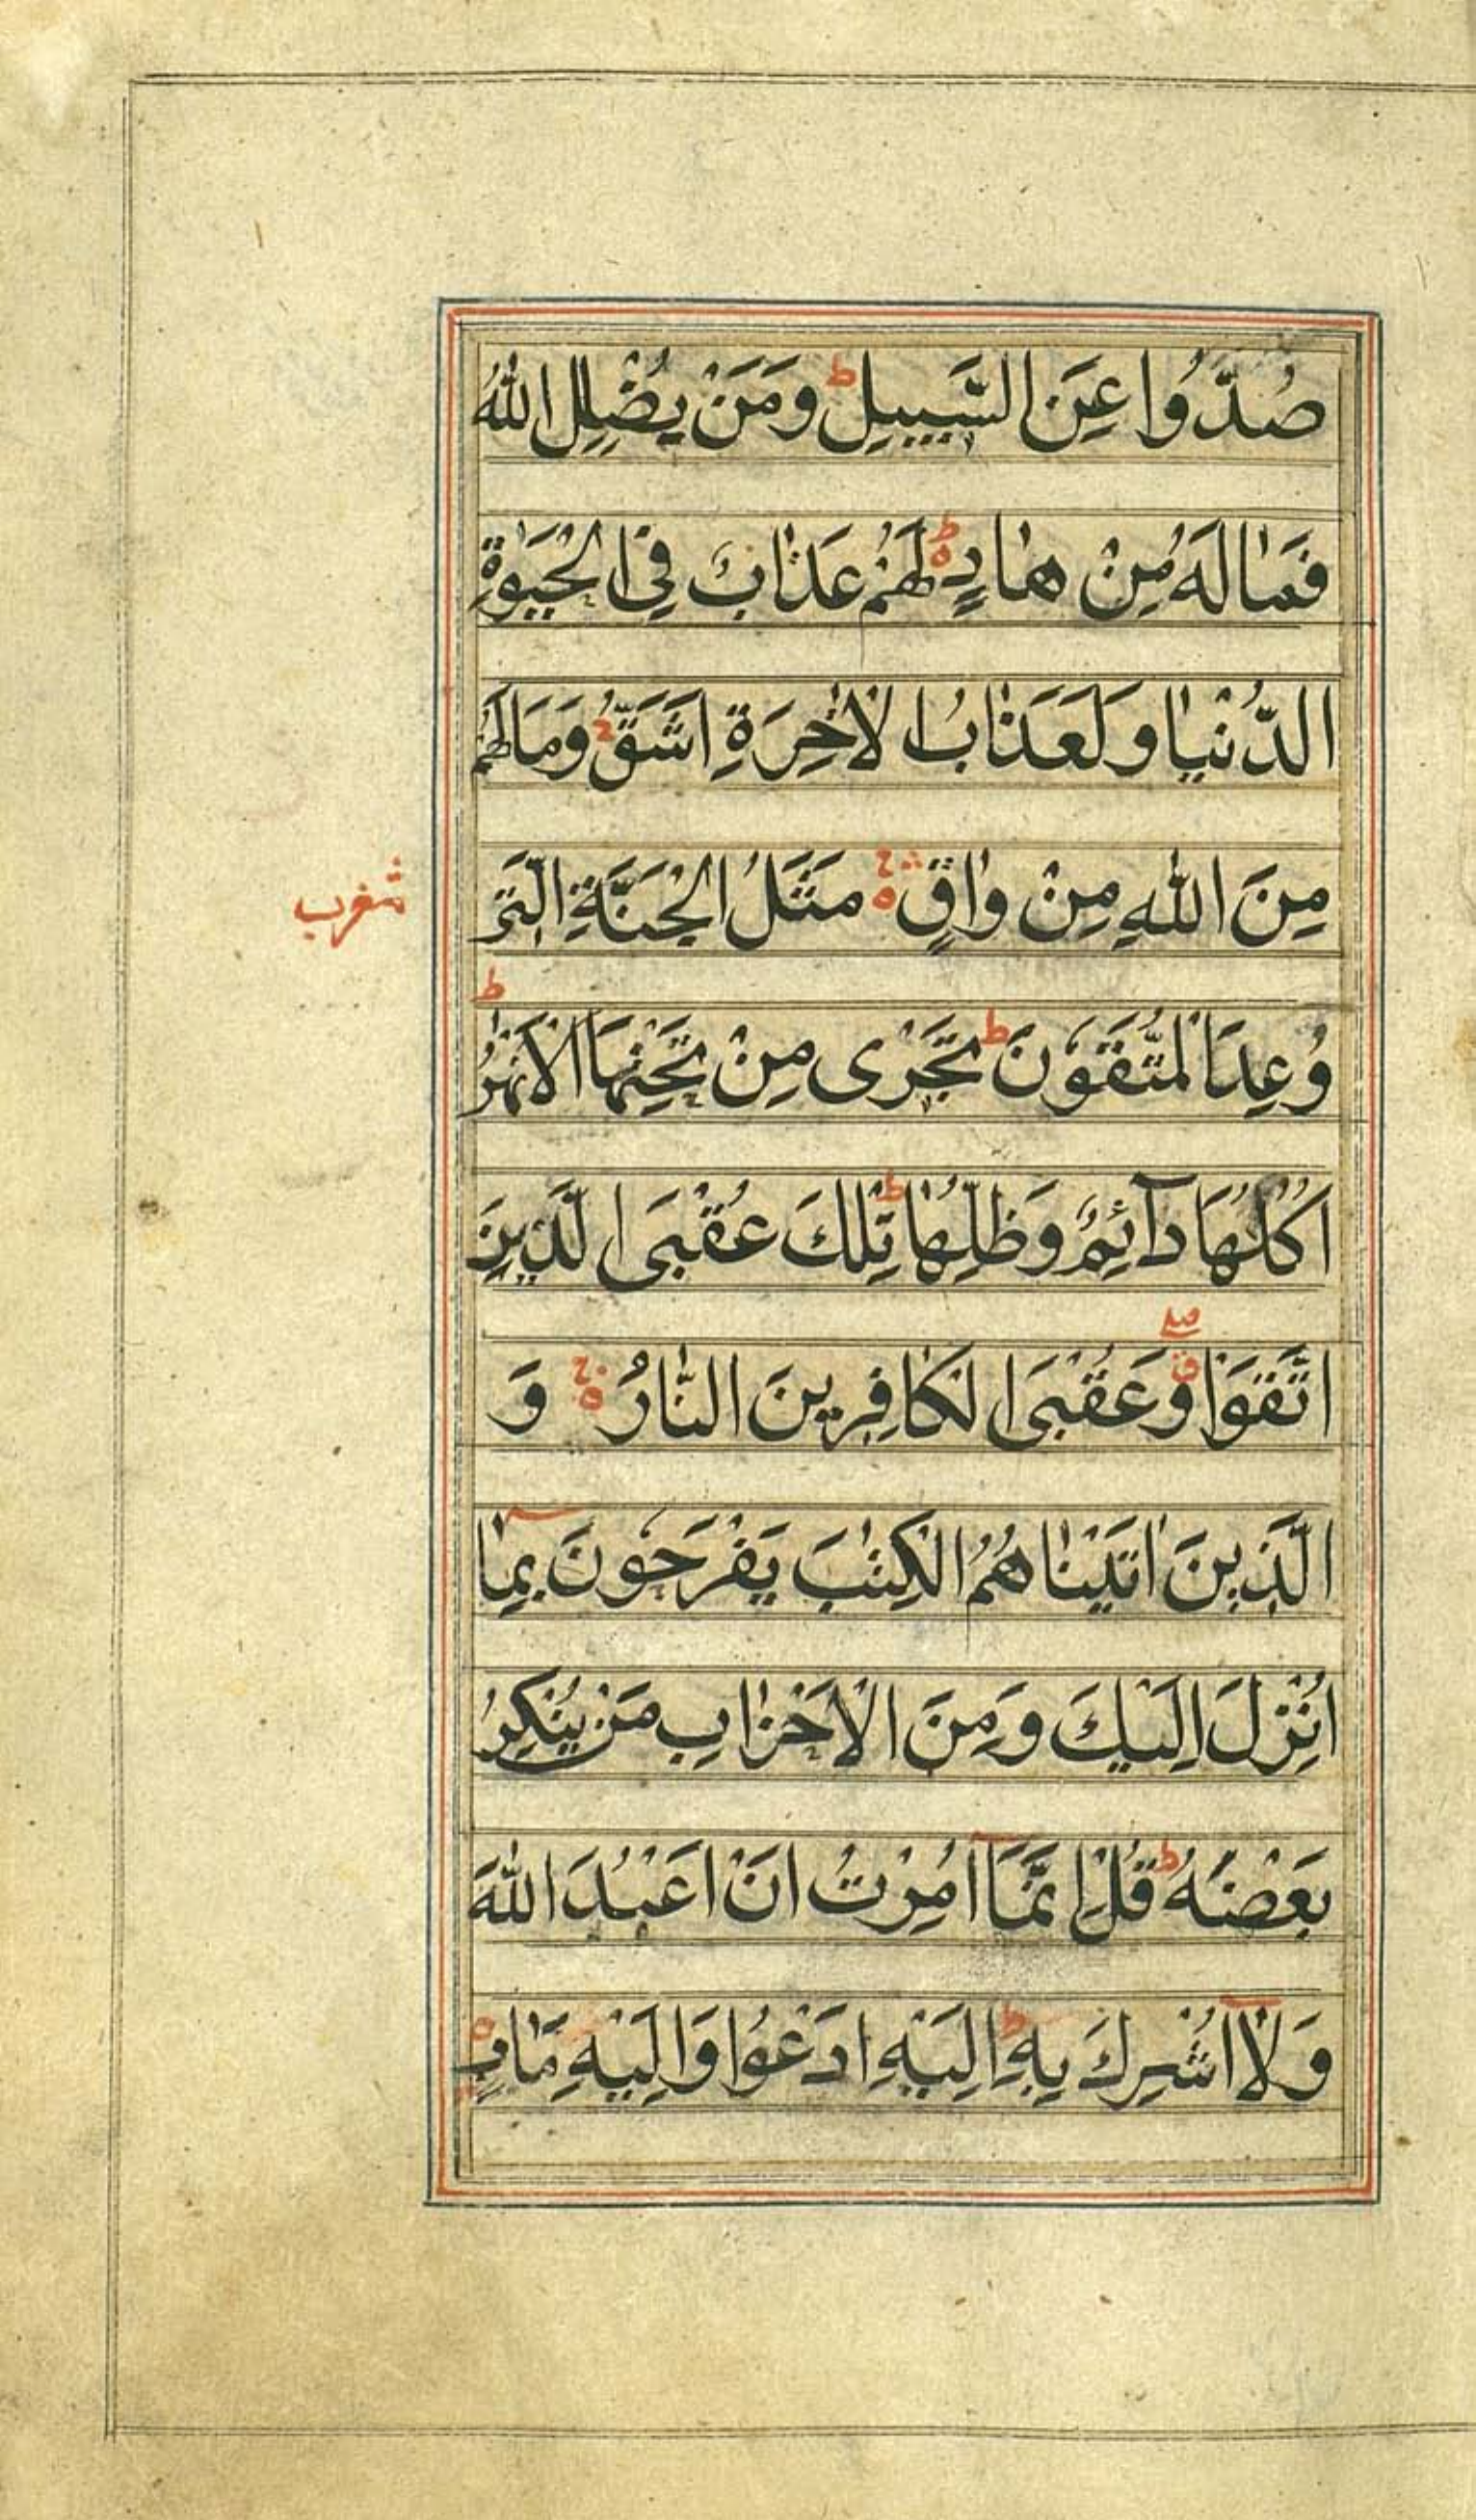 صُدُّوا عَنِ السَّبِيلِ ط وَمَنْ يُضْلِلِ اللّٰهُ
فَمَا لَهُ مِنْ هَادٍ ط لَهُمْ عَذَابٌ فِي الْحَيٰوةِ
الدُّنْيَا وَلَعَذَابُ الْاٰخِرَةِ اَشَقُّ ج وَمَا لَهُمْ
مِنَ اللّٰهِ مِنْ وَاقٍ مَثَلُ الْجَنَّةِ الَّتِي
وُعِدَ الْمُتَّقُوْنَ ط تَجْرِى مِنْ تَحْتِهَا الْاَنْهٰرُ ط
اُكُلُهَا دَآئِمٌ وَظِلُّهَا ط تِلْكَ عُقْبَى الَّذِينَ
اتَّقَوْا وَعُقْبَى الْكَافِرِينَ النَّارُ وَ
الَّذِينَ اٰتَيْنَاهُمُ الْكِتٰبَ يَفْرَحُوْنَ بِمَآ
اُنْزِلَ اِلَيْكَ وَمِنَ الْاَحْزَابِ مَنْ يُنْكِرُ
بَعْضَهُ ط قُلْ اِنَّمَآ اُمِرْتُ اَنْ اَعْبُدَ اللّٰهَ
وَلَآ اُشْرِكَ بِهِ ط اِلَيْهِ اَدْعُوا وَاِلَيْهِ مَاٰبِ